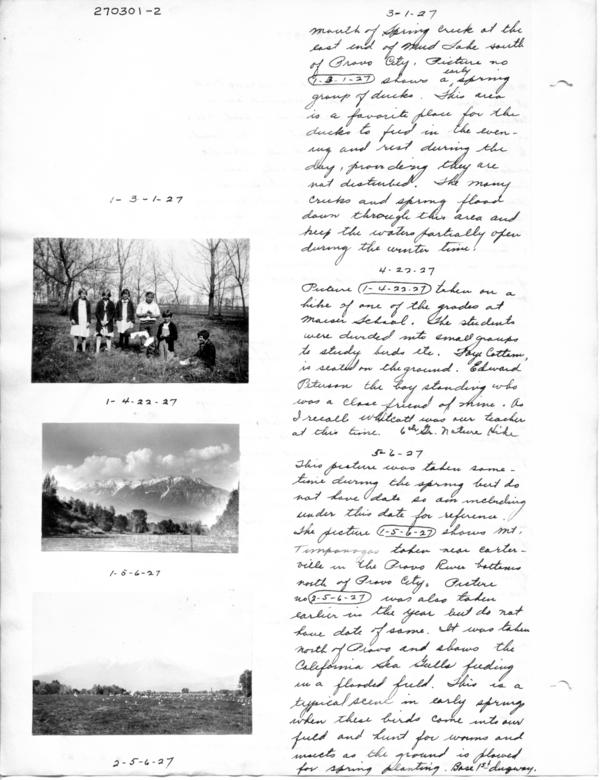 270301-2
3-1-27
mouth of Spring Creek at the
east end of Mud Lake south
of Provo City. Picture no
1-3-1-27 shows a early spring
group of ducks. This area
is a favorite place for the
ducks to feed in the even-
ing and rest during the
day, providing they are
not disturbed. The many
creeks and spring flood
down through this area and
keep the waters partially open
during the winter time.
1-3-1-27
4-22-27
Picture 1-4-22-27 taken on a
hike of one of the grades at
Maeser School. The students
were divided into small groups
to study birds etc. Faye Cottam,
is seated on the ground. Edward
Peterson the boy standing who
was a close friend of mine. As
I recall was our teacher
at this time. 6th Gr. Nature Hike
1-4-22-27
5-6-27
This picture was taken some-
time during the spring but do
not have date so am including
under this date for reference.
The picture 1-5-6-27 shows Mt.
Timpanogas taken near Carter-
ville in the Provo River bottoms
north of Provo City. Picture
no 2-5-6-27 was also taken
earlier in the year but do not
have date of same. It was taken
north of Provo and shows the
California Sea Gulls feeding
in a flooded field. This is a
typical scene in early spring
when these birds come into our
field and hunt for worms and
insects as the ground is plowed
for spring planting. Base 1st dugway.
1-5-6-27
2-5-6-27